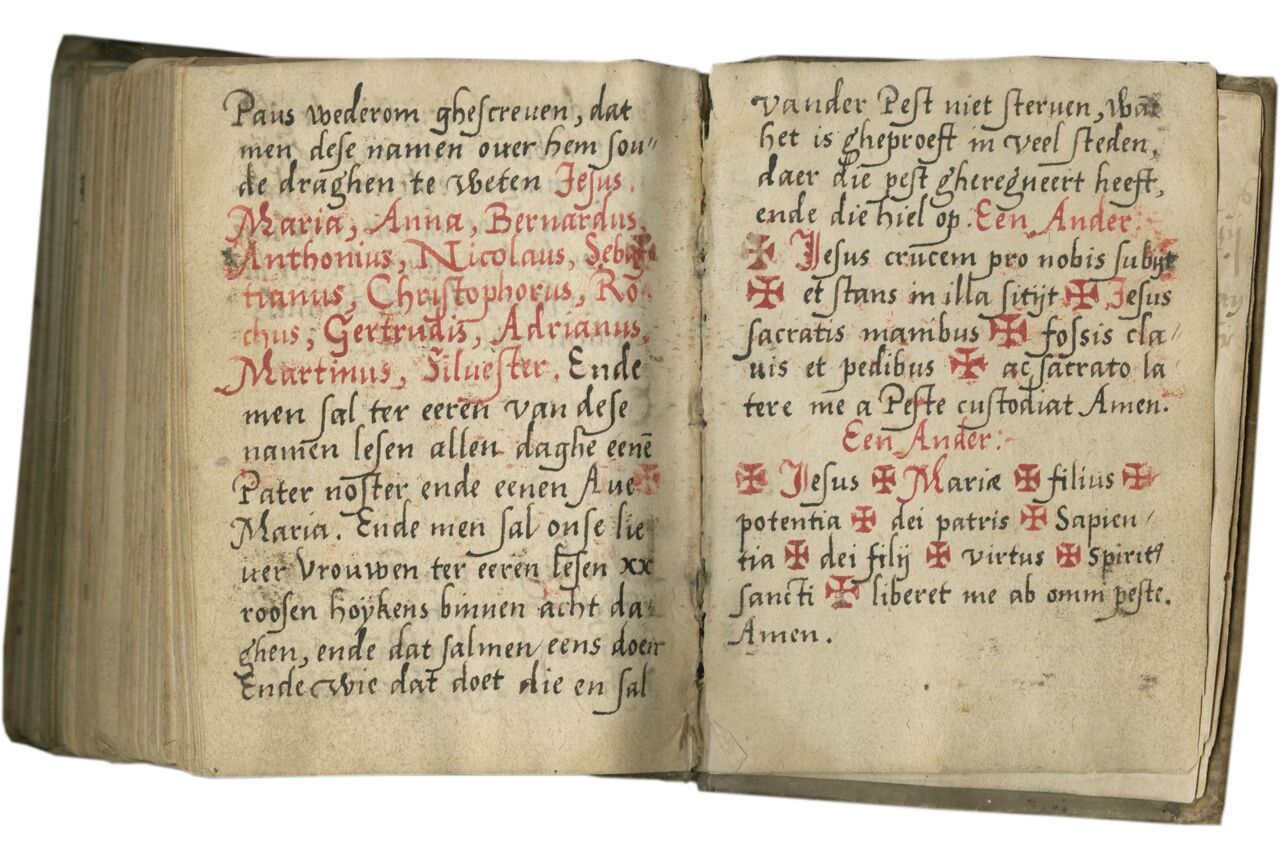 Paus wederom ghescreven, dat
men dese namen ouer hem sou"
de draghen te weten Jesus,
Maria, Anna, Bernardus,
Anthonius, Nicolaus, Seba
tianus, Christophorus, Ro
chus, Gertrudis, Adrianus,
Martinus, Siluester. Ende
men sal ter eeren van dese
namen lesen allen daghe eenē
Pater noster ende eenen Aue
Maria. Ende men sal onse lie
uer Vrouwen ter eeren lesen xx
roosen hoÿkens binnen acht da
ghen, ende dat salmen eens doen
Ende wie dat doet die en sal
vander Pest niet sterven, wāt
het is gheproeft in veel steden,
daer die pest gheregneert heeft,
ende die hiel op. Een Ander:
✠ Jesus crucem pro nobis subijt
✠ et stans in illa sitijt ✠ Jesus
sacratis manibus ✠ fossis cla/
uis et pedibus ✠ ac sacrato la
tere me a Peste custodiat Amen.
Een Ander:
✠ Jesus ✠ Mariæ ✠ filius ✠
potentia ✠ dei patris ✠ Sapien/
tia ✠ dei filij ✠ virtus ✠ Spirit⁹
sancti ✠ liberet me ab omni peste.
Amen.